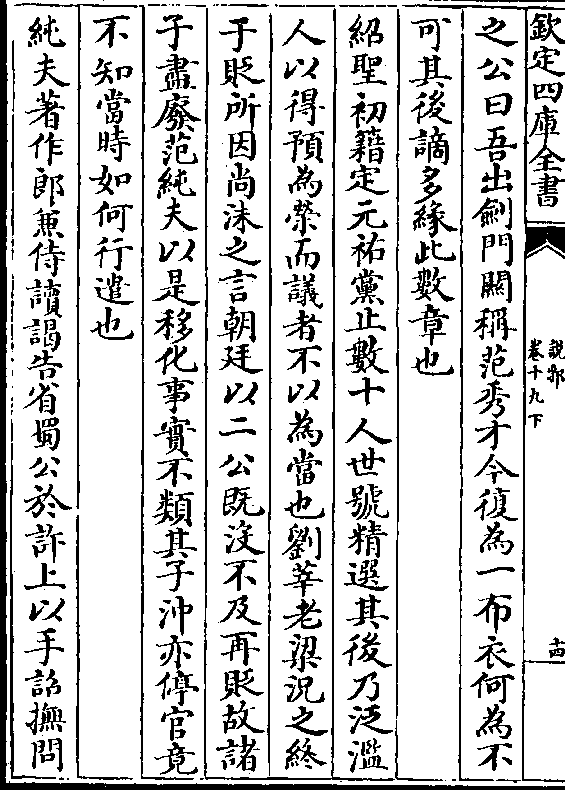 欽定四庫全書
說郛
卷十九下
十四
之公曰吾出劍門關稱范秀才今復為一布衣何為不
可其後謫多緣此數章也
紹聖初籍定元祐黨止數十人世號精選其後乃泛濫
人以得預為榮而議者不以為當也劉莘老梁況之終
于貶所因尚洙之言朝廷以二公既沒不及再貶故諸
子盡廢范純夫以是移化事實不類其子沖亦停官竟
不知當時如何行遣也
純夫著作郎兼侍讀謁告省蜀公於許上以手詔撫問